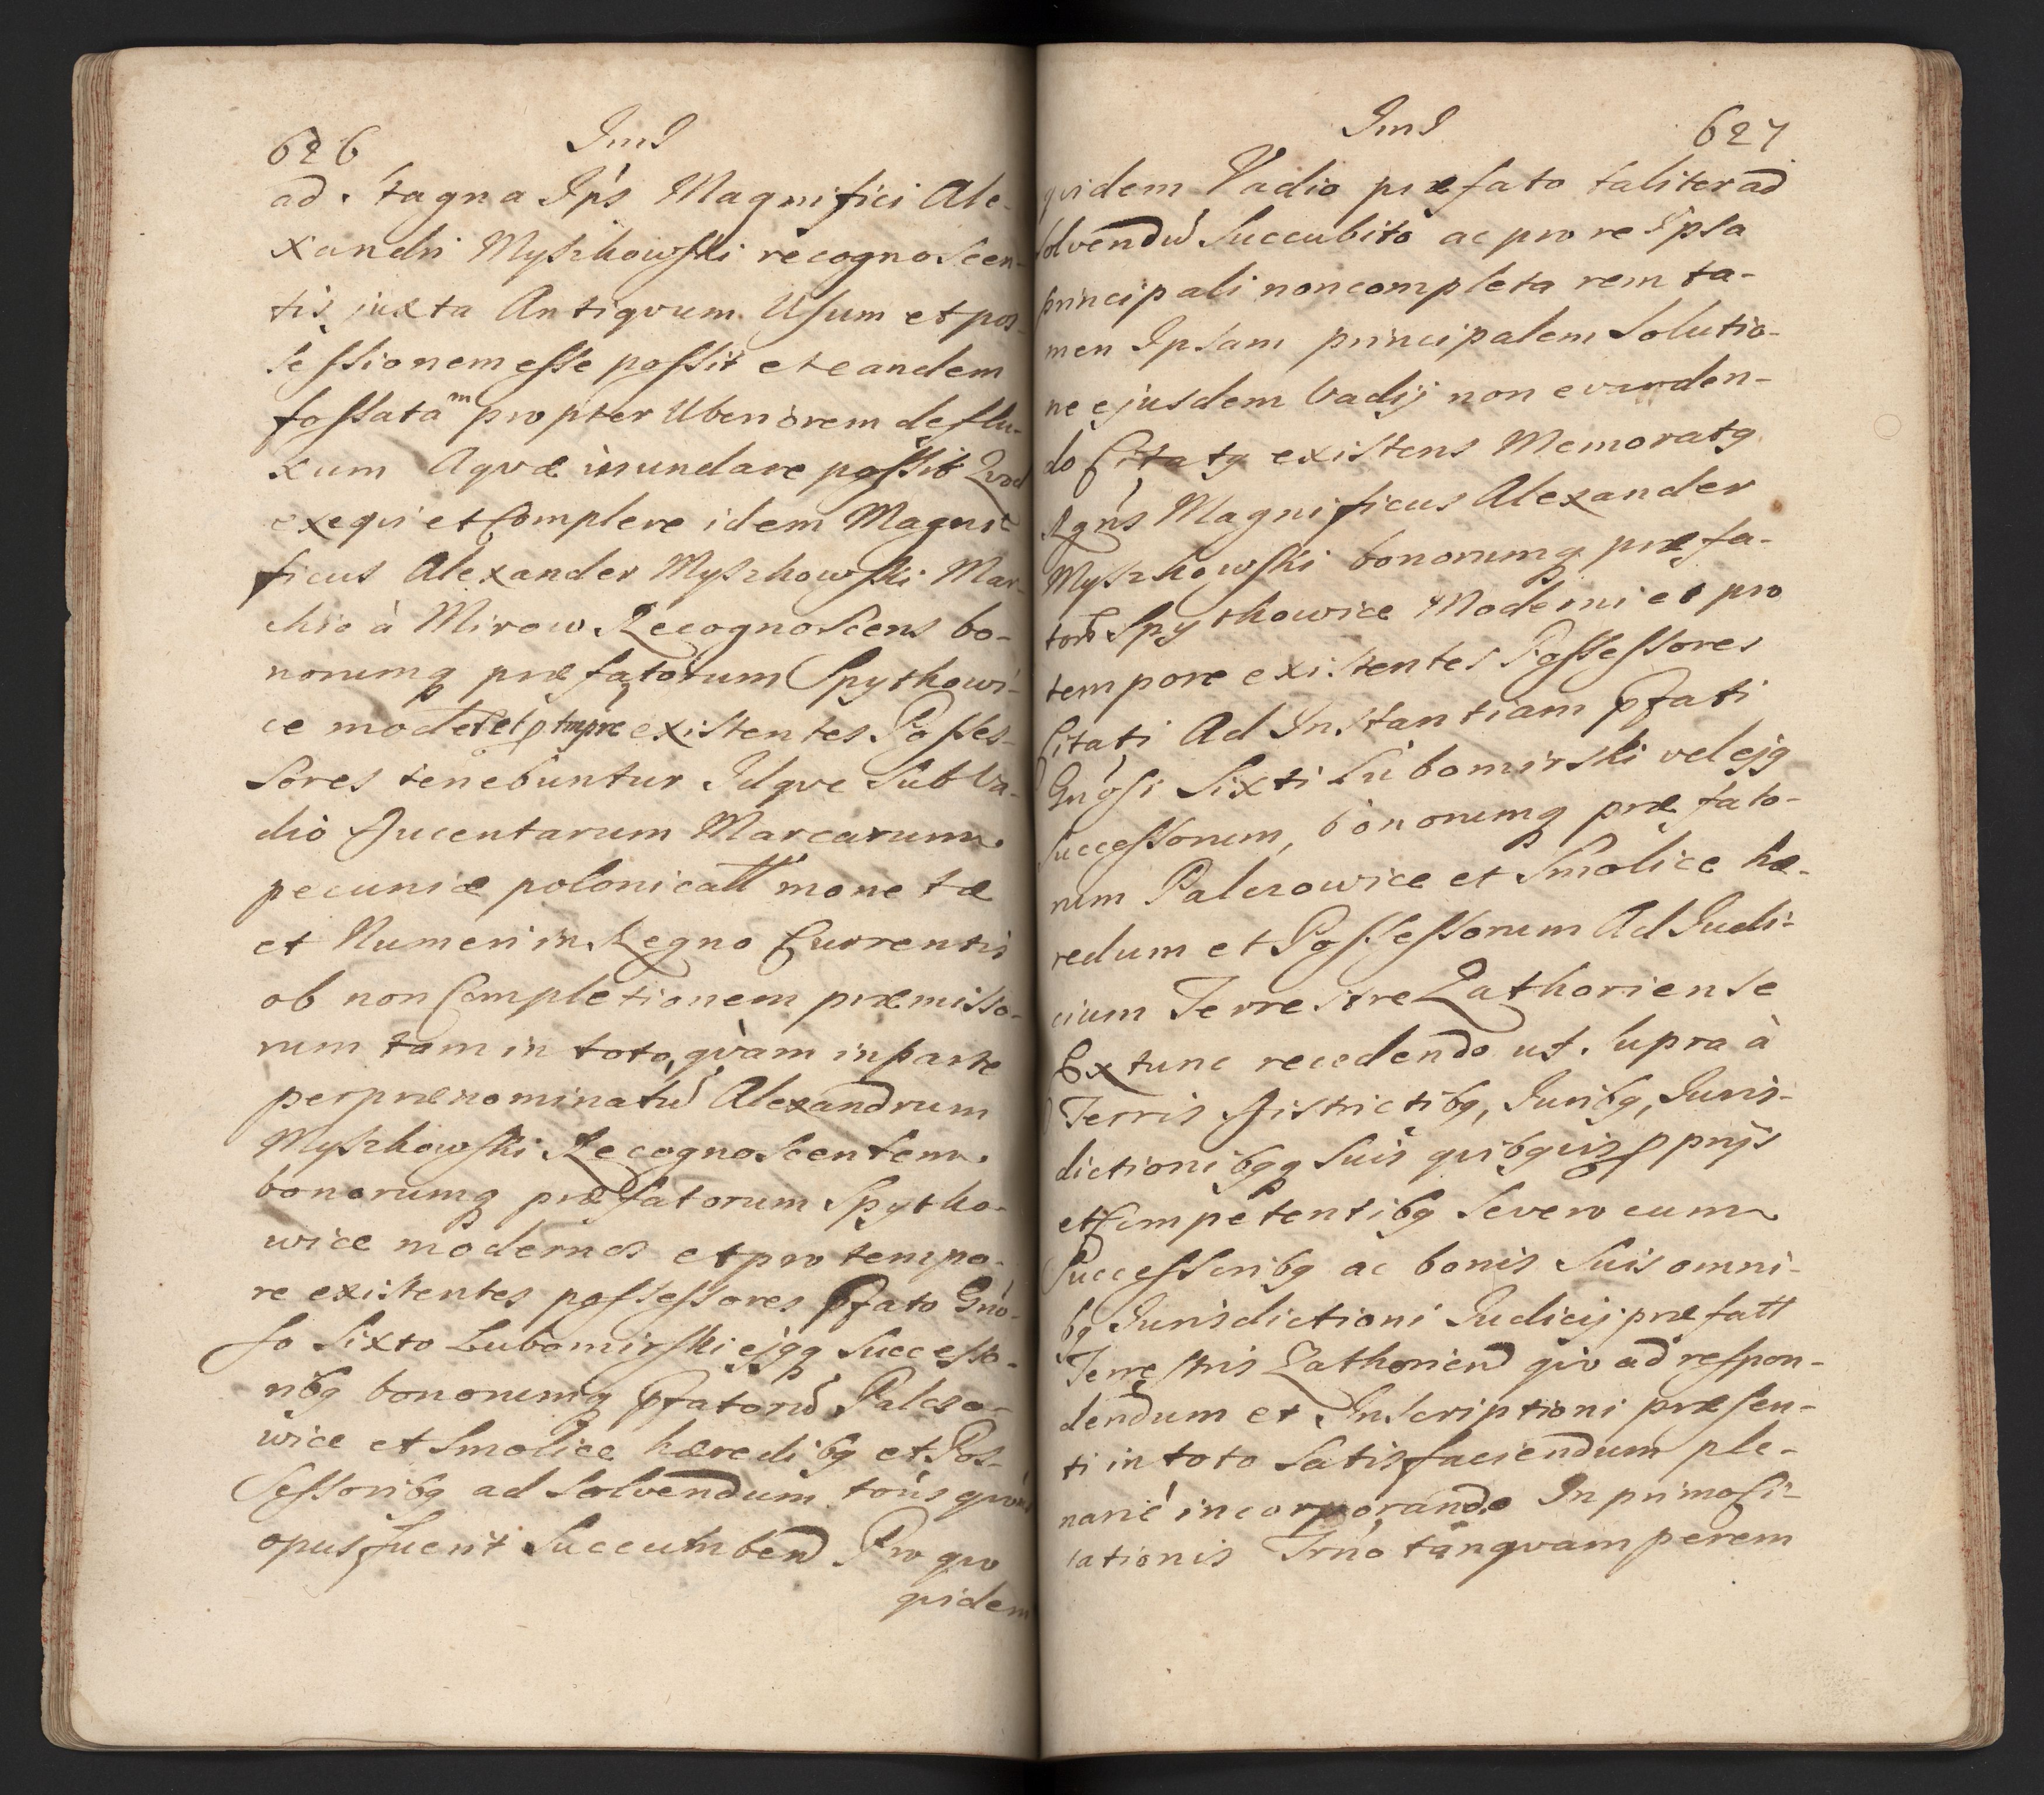 626 Jmd
ad stagna Ips Magnifici Ale-
xandri Myszkowski recognoscen-
tis juxta Antiqvum Usum et pos-
sessionem esse possit et eandem
fossatam propter Uberiorem deflu-
xum Aqvæ inundare possit Qvod
exeqvi et Complere idem Magni-
ficus Alexander Myszkowski Mar-
chio à Mirow Recognoscens bo-
norumq præfatorum Spythowi-
ce moder et p tmpre existentes Posses-
sores tenebuntur Idqve sub Va-
dio Ducentarum Marcarum
pecuniæ polonicall monetæ
et Numeri in Regno Currentis
ob non Completionem præmisso-
rum tam in toto, qvàm in parte
per prænominatū Alexandrum
Myszkowski Recognoscentem
bonorumq præfatorum Spytho-
wice modernos et pro tempo-
re existentes possessores pfato Gnó-
so Sixto Lubomirski ejqq Successo-
ribq bonorumq pfatorū Palczo-
wice et Smolice hæredibq et Pos-
sessoribq ad solvendum toús qvóts
opus fuerit Succumben Pro qvo
qvidem
Jmd 627
qvidem Vadio præfato taliter ad
solvendū Succubito ac pro re Ipsa
principali non completa rem ta-
men Ipsam principalem Solutio-
ne ejusdem Vadij non evaden-
do Citatq existens Memoratq
Rgns Magnificus Alexander
Myszkowski bonorumq præfa-
torū Spythowice Moderni et pro
tempore existentes Possessores
Citati Ad Instantiam pfati
Gnósi Sixti Lubomirski vel ejq
Successorum, bonorumq præfato-
rum Palczowice et Smolice hæ-
redum et Possessorum Ad Judi-
cium Terrestre Zathoriense
Ex tunc recedendo ut supra à
Terris Districtibq, Juribq, Juris-
dictionibqq suis qvibqvis pprijs
et Competentibq se vero cum
Successoribq ac bonis Suis omni-
bq Jurisdictioni Judicij præfatt
Terrestris Zathorien qvo ad respon-
dendum et Inscriptioni præsen-
ti in toto satisfaciendum ple-
narié incorporando In primo Ci-
tationis Trno tanqvam perem